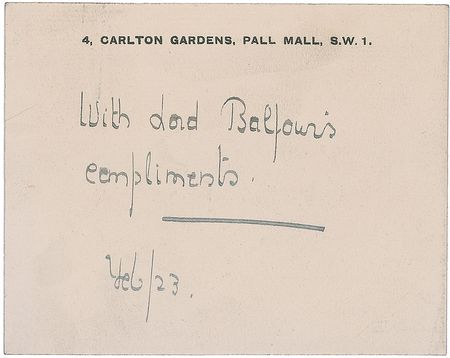 4, CARLTON GARDENS, PALL MALL, S.W. 1.
With Lord Balfour's
compliments.
Feb/23.